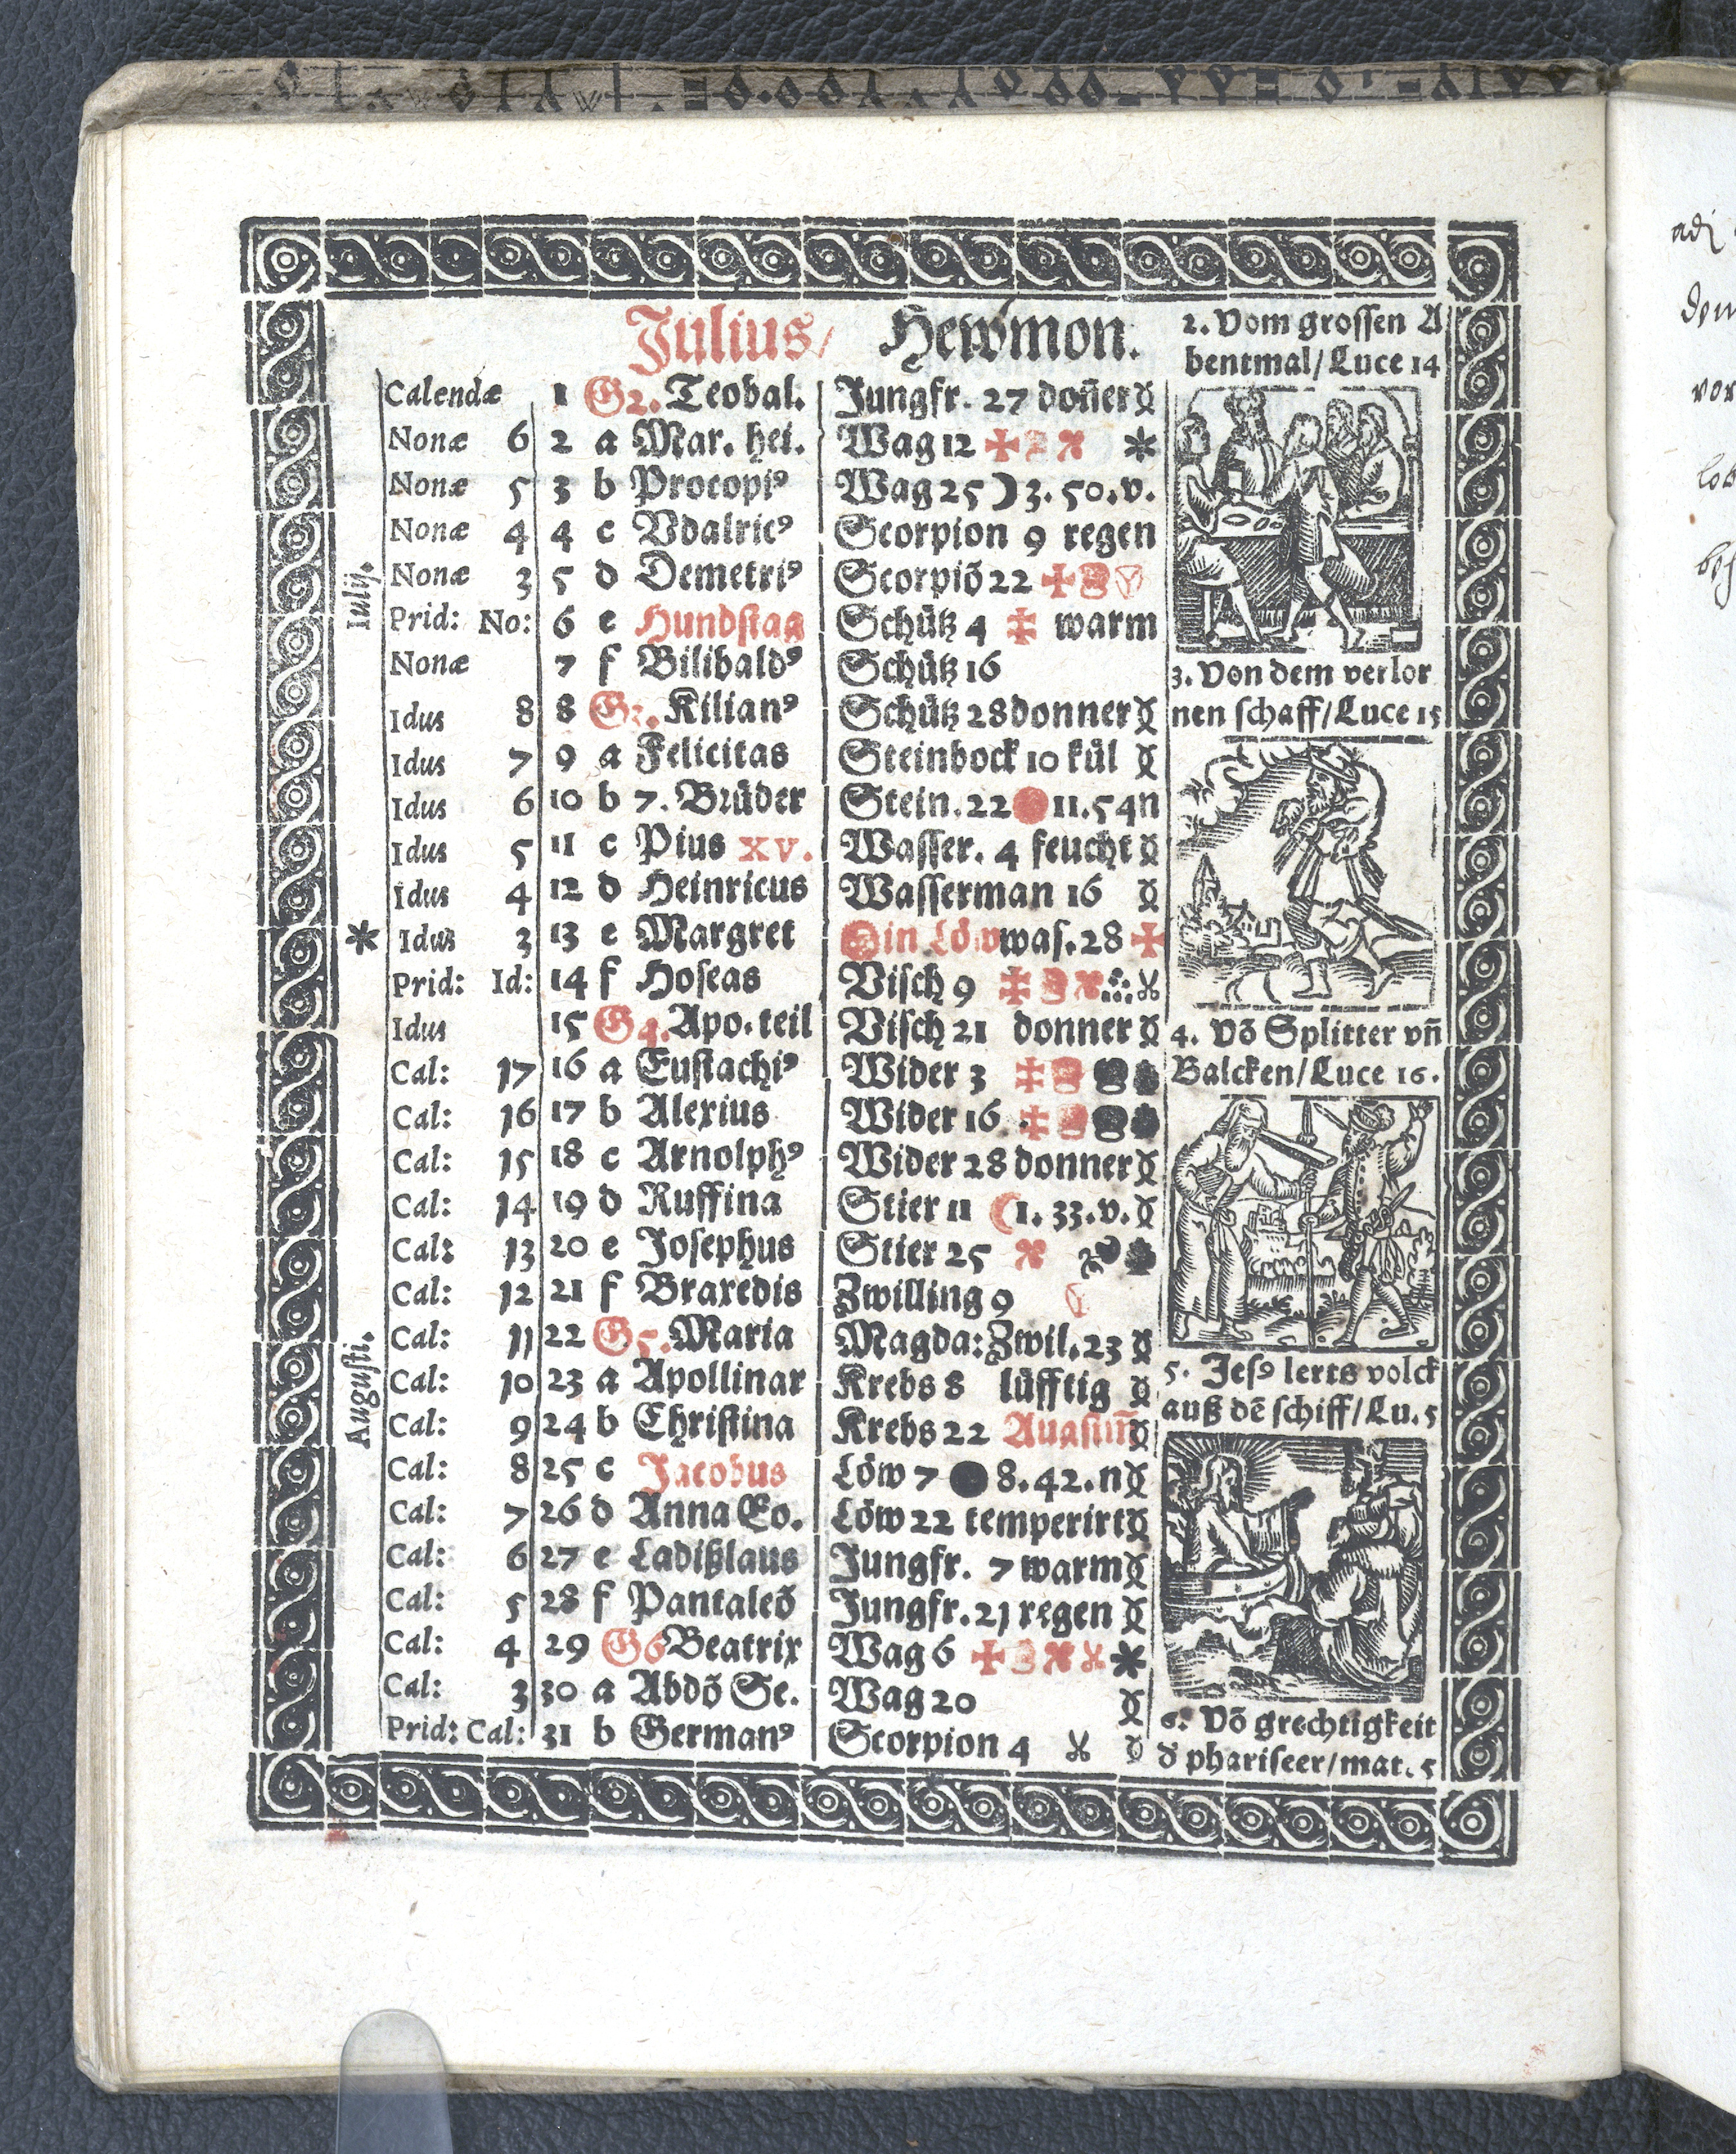 Julius/ Hewmon.
Calendæ 1 G2. Teobal. Jungfr. 27 doñer
Nonæ 6 2 a Mar. hei. Wag 12
Nonæ 5 3 b Procopiꝰ Wag 25 ☽ 3. 50. v.
Nonæ 4 4 c Vdalricꝰ Scorpion 9 regen
Nonæ 3 5 d Demetriꝰ Scorpiõ 22
Prid: No: 6 e Hundstag Schütz 4 warm
Nonæ 7 f Bilibaldꝰ Schütz 16
Idus 8 8 G3. Kilianꝰ Schütz 28 donner
Idus 7 9 a Felicitas Steinbock 10 kül
Idus 6 10 b 7. Brüder Stein. 22 11. 54 n
Idus 5 11 c Pius xv. Wasser. 4 feucht
Idus 4 12 d Heinricus Wasserman 16
* Idus 3 13 e Margret ☉ in Löw was. 28
Prid: Id: 14 f Hoseas Visch 9
Idus 15 G4. Apo. teil Visch 21 donner
Cal: 17 16 a Eustachiꝰ Wider 3
Cal: 16 17 b Alexius Wider 16
Cal: 15 18 c Arnolphꝰ Wider 28 donner
Cal: 14 19 d Ruffina Stier 11 ☾ 1. 33. v.
Cal: 13 20 e Josephus Stier 25
Cal: 12 21 f Braxedis Zwilling 9
Cal: 11 22 G5. Maria Magda: Zwil. 23
Cal: 10 23 a Apollinar Krebs 8 lüfftig
Cal: 9 24 b Christina Krebs 22
Cal: 8 25 c Jacobus Löw 7 ● 8. 42. n
Cal: 7 26 d Anna Eo. Löw 22 temperirt
Cal: 6 27 e Ladißlaus Jungfr. 7 warm
Cal: 5 28 f Pantaleõ Jungfr. 21 regen
Cal: 4 29 G6 Beatrix Wag 6
Cal: 3 30 a Abdõ Se. Wag 20
Prid: Cal: 31 b Germanꝰ Scorpion 4
Iulij.
Augusti.
2. Vom grossen A
bentmal/Luce 14
3. Von dem verlor
nen schaff/Luce 15
4. Võ Splitter vñ
Balcken/Luce 16.
5. Jesꝰ lerts volck
auß dẽ schiff/Lu. 5
6. Võ grechtigkeit
d phariseer/mat. 5